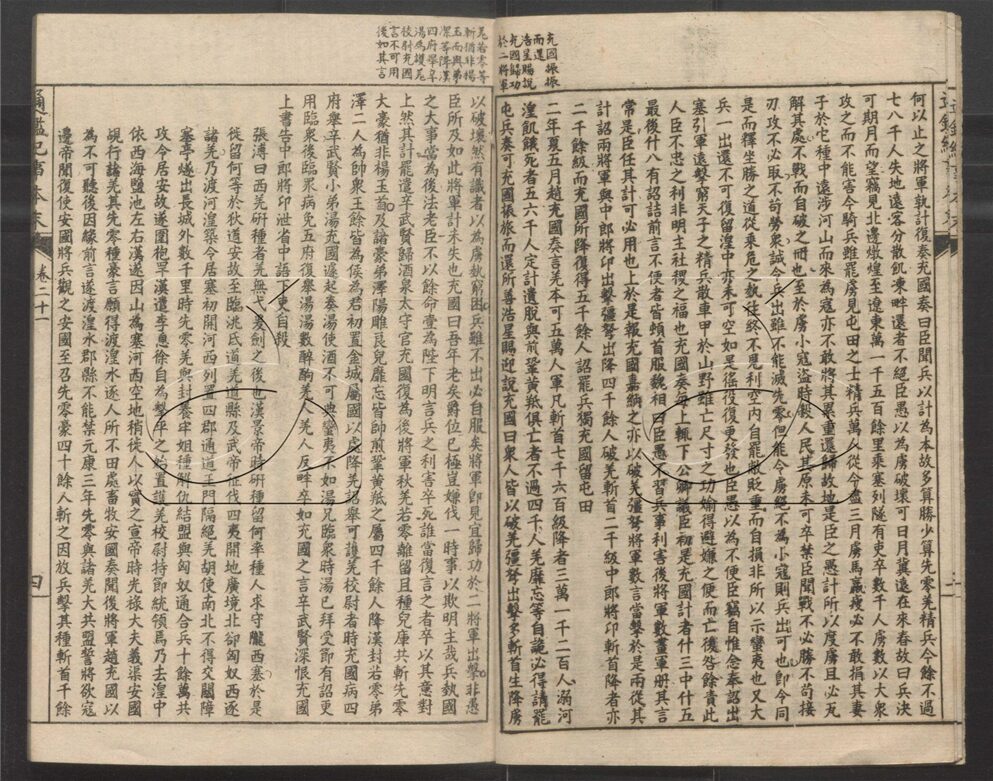 充國振旅
而還
浩星賜說
充國歸功
於二將軍
何以止之將軍孰計復奏充國奏曰臣聞兵以計為本故多算勝少算先零羌精兵今餘不過
七八千人失地遠客分散飢凍畔還者不絕臣愚以為虜破壞可日月冀遠在來春故曰兵決
可期月而望竊見北邊燉煌至遼東萬一千五百餘里乘塞列隧有吏卒數千人虜數以大衆
攻之而不能害今騎兵雖罷虜見屯田之士精兵萬人從今盡三月虜馬羸瘦必不敢捐其妻
子於它種中遠涉河山而來為寇亦不敢將其累重還歸故地是臣之愚計所以度虜且必瓦
解其處不戰而自破之冊也至於虜小寇盜時殺人民其原未可卒禁臣聞戰不必勝不苟接
刃攻不必取不苟勞衆誠令兵出雖不能滅先零但能令虜絕不為小寇則兵出可也即今同
是而釋坐勝之道從乘危之勢往終不見利空內自罷敝貶重而自損非所以示蠻夷也又大
兵一出還不可復留湟中亦未可空如是徭役復更發也臣愚以為不便臣竊自惟念奉詔出
塞引軍遠擊窮天子之精兵散車甲於山野雖亡尺寸之功媮得避嫌之便而亡後咎餘責此
人臣不忠之利非明主社稷之福也充國奏每上輒下公卿議臣初是充國計者什三中什五
最後什八有詔詰前言不便者皆頓首服魏相曰臣愚不習兵事利害後將軍數畫軍冊其言
常是臣任其計可必用也上於是報充國嘉納之亦以破羌彊弩將軍數言當擊於是兩從其
計詔兩將軍與中郎將卬出擊彊弩出降四千餘人破羌斬首二千級中郎將卬斬首降者亦
二千餘級而充國所降復得五千餘人詔罷兵獨充國留屯田
二年夏五月趙充國奏言羌本可五萬人軍凡斬首七千六百級降者三萬一千二百人溺河
湟飢餓死者五六千人定計遺脫與煎鞏黃羝俱亡者不過四千人羌靡忘等自詭必得請罷
屯兵奏可充國振旅而還所善浩星賜迎說充國曰衆人皆以破羌彊弩出擊多斬首生降虜
羌若零等
斬猶非楊
玉而與弟
澤等降漢
四府舉辛
湯為護羌
校尉充國
言不可用
後如其言
以破壞然有識者以為虜執窮困兵雖不出必自服矣將軍即見宜歸功於二將軍出擊非愚
臣所及如此將軍計未失也充國曰吾年老矣爵位已極豈嫌伐一時事以欺明主哉兵執國
之大事當為後法老臣不以餘命壹為陛下明言兵之利害卒死誰當復言之者卒以其意對
上然其計罷遣辛武賢歸酒泉太守官充國復為後將軍秋羌若零離留且種兒庫共斬先零
大豪猶非楊玉首及諸豪弟澤陽雕良兒靡忘皆帥煎鞏黃羝之屬四千餘人降漢封若零弟
澤二人為帥衆王餘皆為侯為君初置金城屬國以處降羌詔舉可護羌校尉者時充國病四
府舉辛武賢小弟湯充國遽起奏湯使酒不可典蠻夷不如湯兄臨衆時湯已拜受節有詔更
用臨衆後臨衆病免五府復舉湯湯數醉酗羌人羌人反畔卒如充國之言辛武賢深恨充國
上書告中郎將卬泄省中語下吏自殺
張溥曰西羌研種者羌無弋爰劍之後也漢景帝時研種留何率種人求守隴西塞於是
徙留何等於狄道安故至臨洮氐道羌道縣及武帝征伐四夷開地廣境北卻匈奴西逐
諸羌乃渡河湟築令居塞初開河西列置四郡通道玉門隔絕羌胡使南北不得交關障
塞亭燧出長城外數千里時先零羌與封養牢姐種解仇結盟與匈奴通合兵十餘萬共
攻令居安故遂圍枹罕漢遣李息徐自為擊平之始置護羌校尉持節統領焉乃去湟中
依西海鹽池左右漢遂因山為塞河西空地稍徙人以實之宣帝時光祿大夫義渠安國
覘行諸羌其先零種豪言願得渡湟水逐人所不田處畜牧安國奏聞後將軍趙充國以
為不可聽後因緣前言遂渡湟水郡縣不能禁元康三年先零與諸羌大共盟誓將欲寇
邊帝聞復使安國將兵觀之安國至召先零豪四十餘人斬之因放兵擊其種斬首千餘
通鑑紀事本末
卷二十一
四